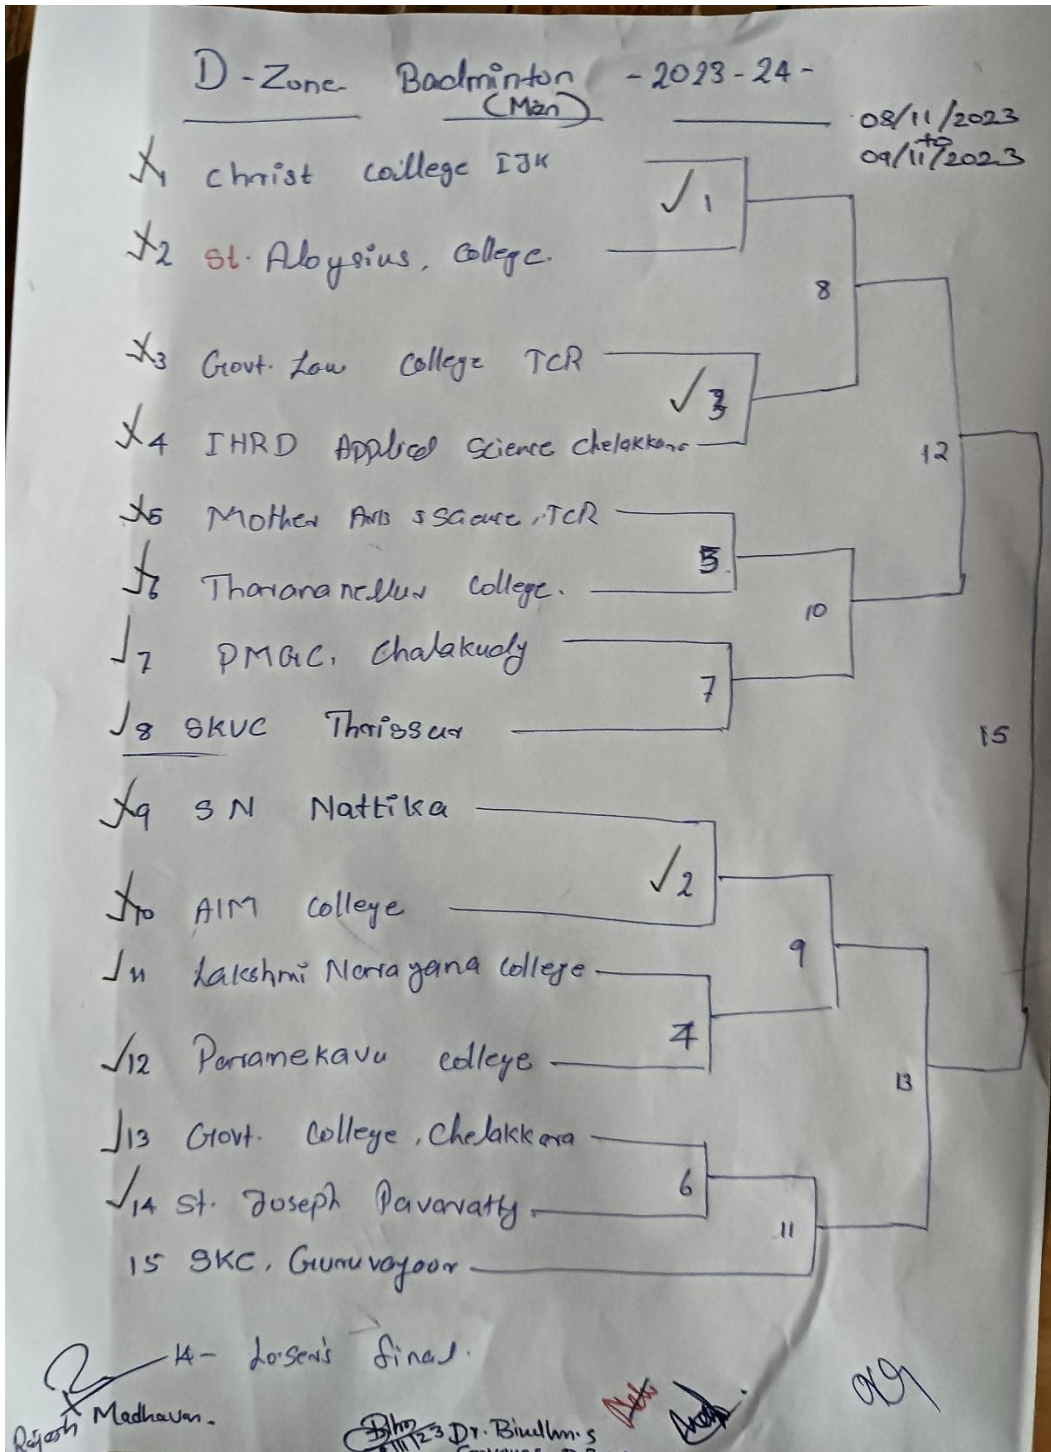 D - Zone Badminton - 2023 - 24 -
(Men)
08/11/2023
to
09/11/2023
1 Christ Caillege IJK
1
2 St. Aloysius, College.
8
3 Govt. Law College TCR
3
4 IHRD Applied Science Chelakkara
12
5 Mother Arts & Science, TCR
5
6 Tharananellur College.
10
7 PMGC, Chalakudy
7
8 SKVC Thrissur
15
9 SN Nattika
2
10 AIM College
9
11 Lakshmi Narayana College
4
12 Paramekavu College
13
13 Govt. College, Chelakkara
6
14 St. Joseph Pavaratty
11
15 SKC, Guruvayoor
14 - Loser's final.
Rajesh Madhavan.
Dr. Bindhu. S